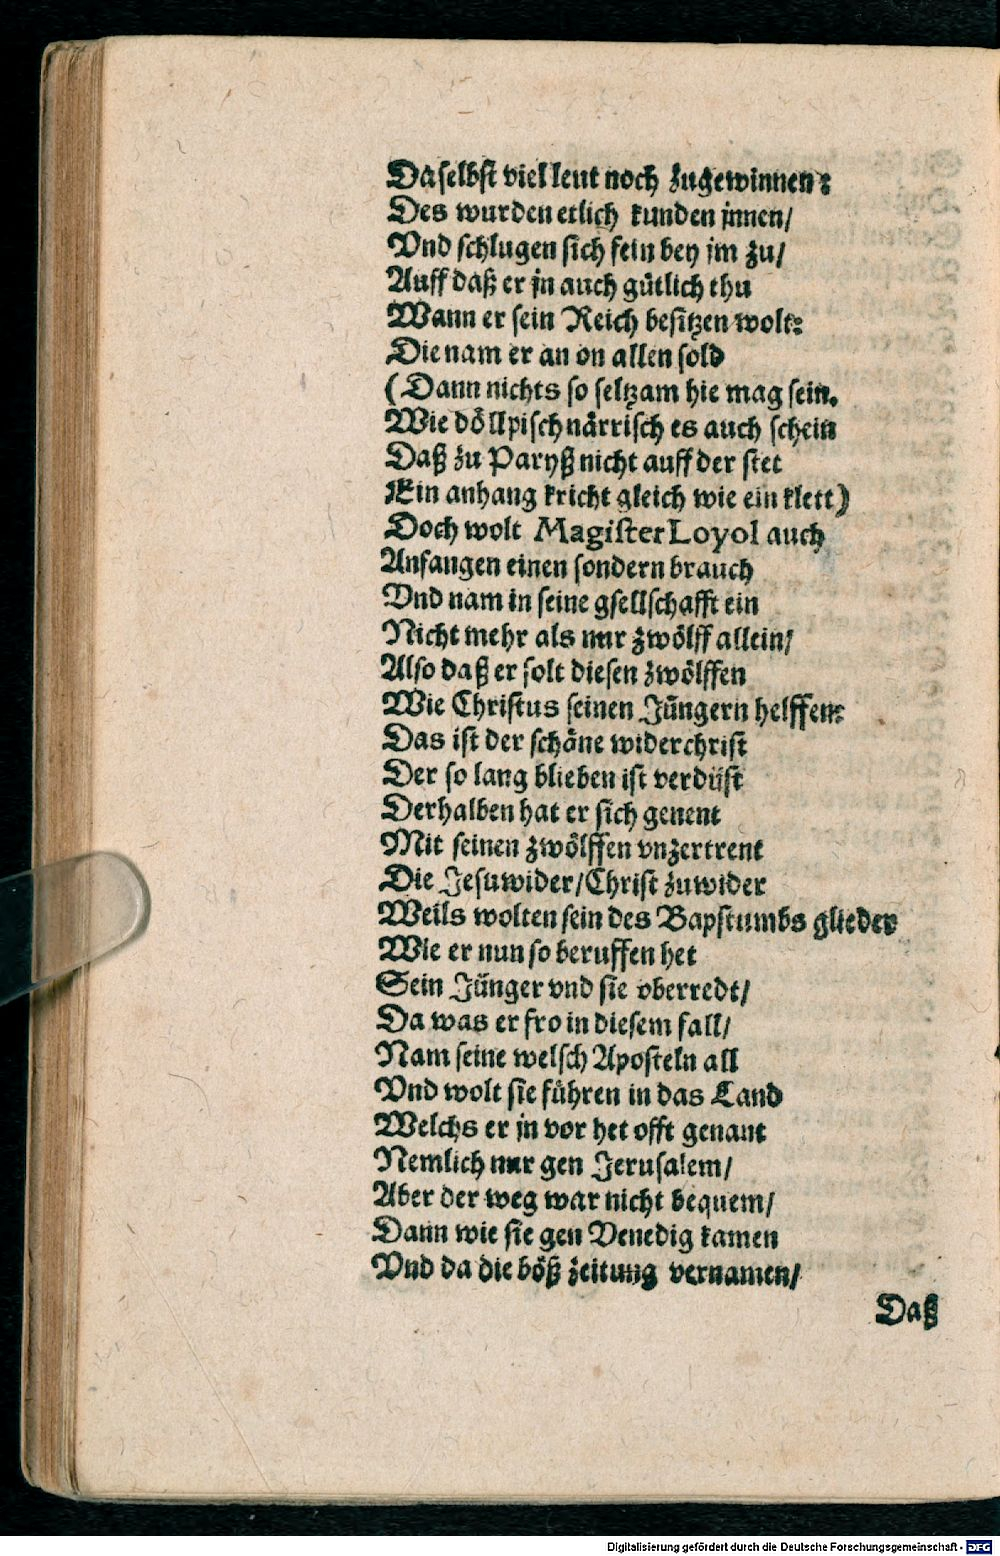 Daselbst viel leut noch zugewinnen:
Des wurden etlich kunden jnnen/
Vnd schlugen sich fein bey jm zu/
Auff daß er jn auch gütlich thu
Wann er sein Reich besitzen wolt:
Die nam er an on allen sold
(Dann nichts so seltzam hie mag sein.
Wie döllpisch närrisch es auch schein
Daß zu Paryß nicht auff der stet
Ein anhang kricht gleich wie ein klett)
Doch wolt Magister Loyol auch
Anfangen einen sondern brauch
Vnd nam in seine gsellschafft ein
Nicht mehr als nur zwölff allein/
Also daß er solt diesen zwölffen
Wie Christus seinen Jüngern helffen:
Das ist der schöne widerchrist
Der so lang blieben ist verdüst
Derhalben hat er sich genent
Mit seinen zwölffen vnzertrent
Die Jesuwider/Christ zuwider
Weils wolten sein des Bapstumbs glieder
Wie er nun so beruffen het
Sein Jünger vnd sie vberredt/
Da was er fro in diesem fall/
Nam seine welsch Aposteln all
Vnd wolt sie führen in das Land
Welchs er jn vor het offt genant
Nemlich nur gen Jerusalem/
Aber der weg war nicht bequem/
Dann wie sie gen Venedig kamen
Vnd da die böß zeitung vernamen/
Daß
Digitalisierung gefördert durch die Deutsche Forschungsgemeinschaft - DFG